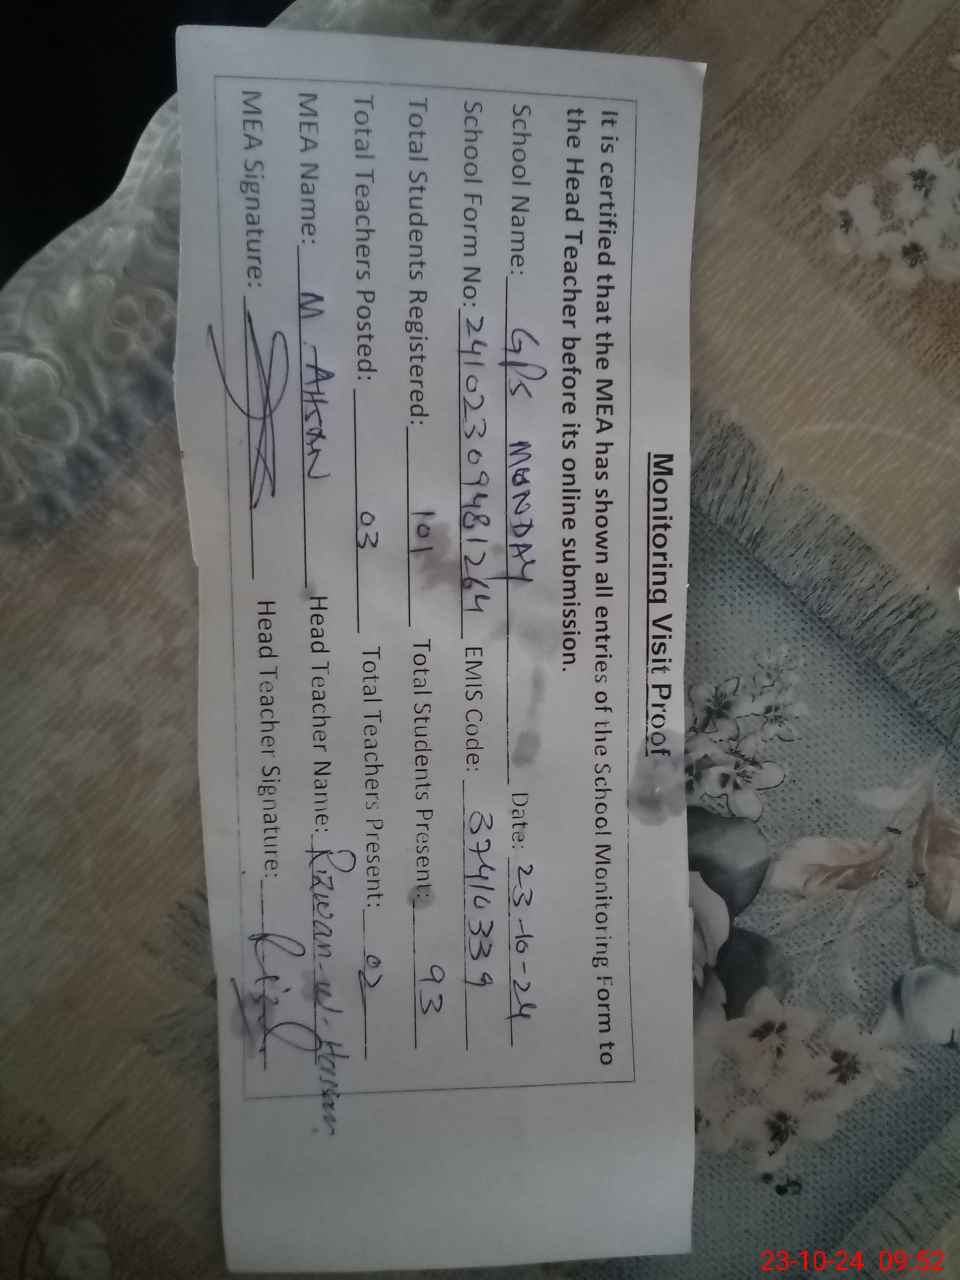 Monitoring Visit Proof
It is certified that the MEA has shown all entries of the School Monitoring Form to
the Head Teacher before its online submission.
School Name: GPS MANDAY Date: 23-10-24
School Form No: 24102309481264 EMIS Code: 37410339
Total Students Registered: 101 Total Students Present: 93
Total Teachers Posted: 03 Total Teachers Present: 02
MEA Name: M. AHSAN Head Teacher Name: Rizwan-ul-Hassan
MEA Signature: Head Teacher Signature:
23-10-24 09:52